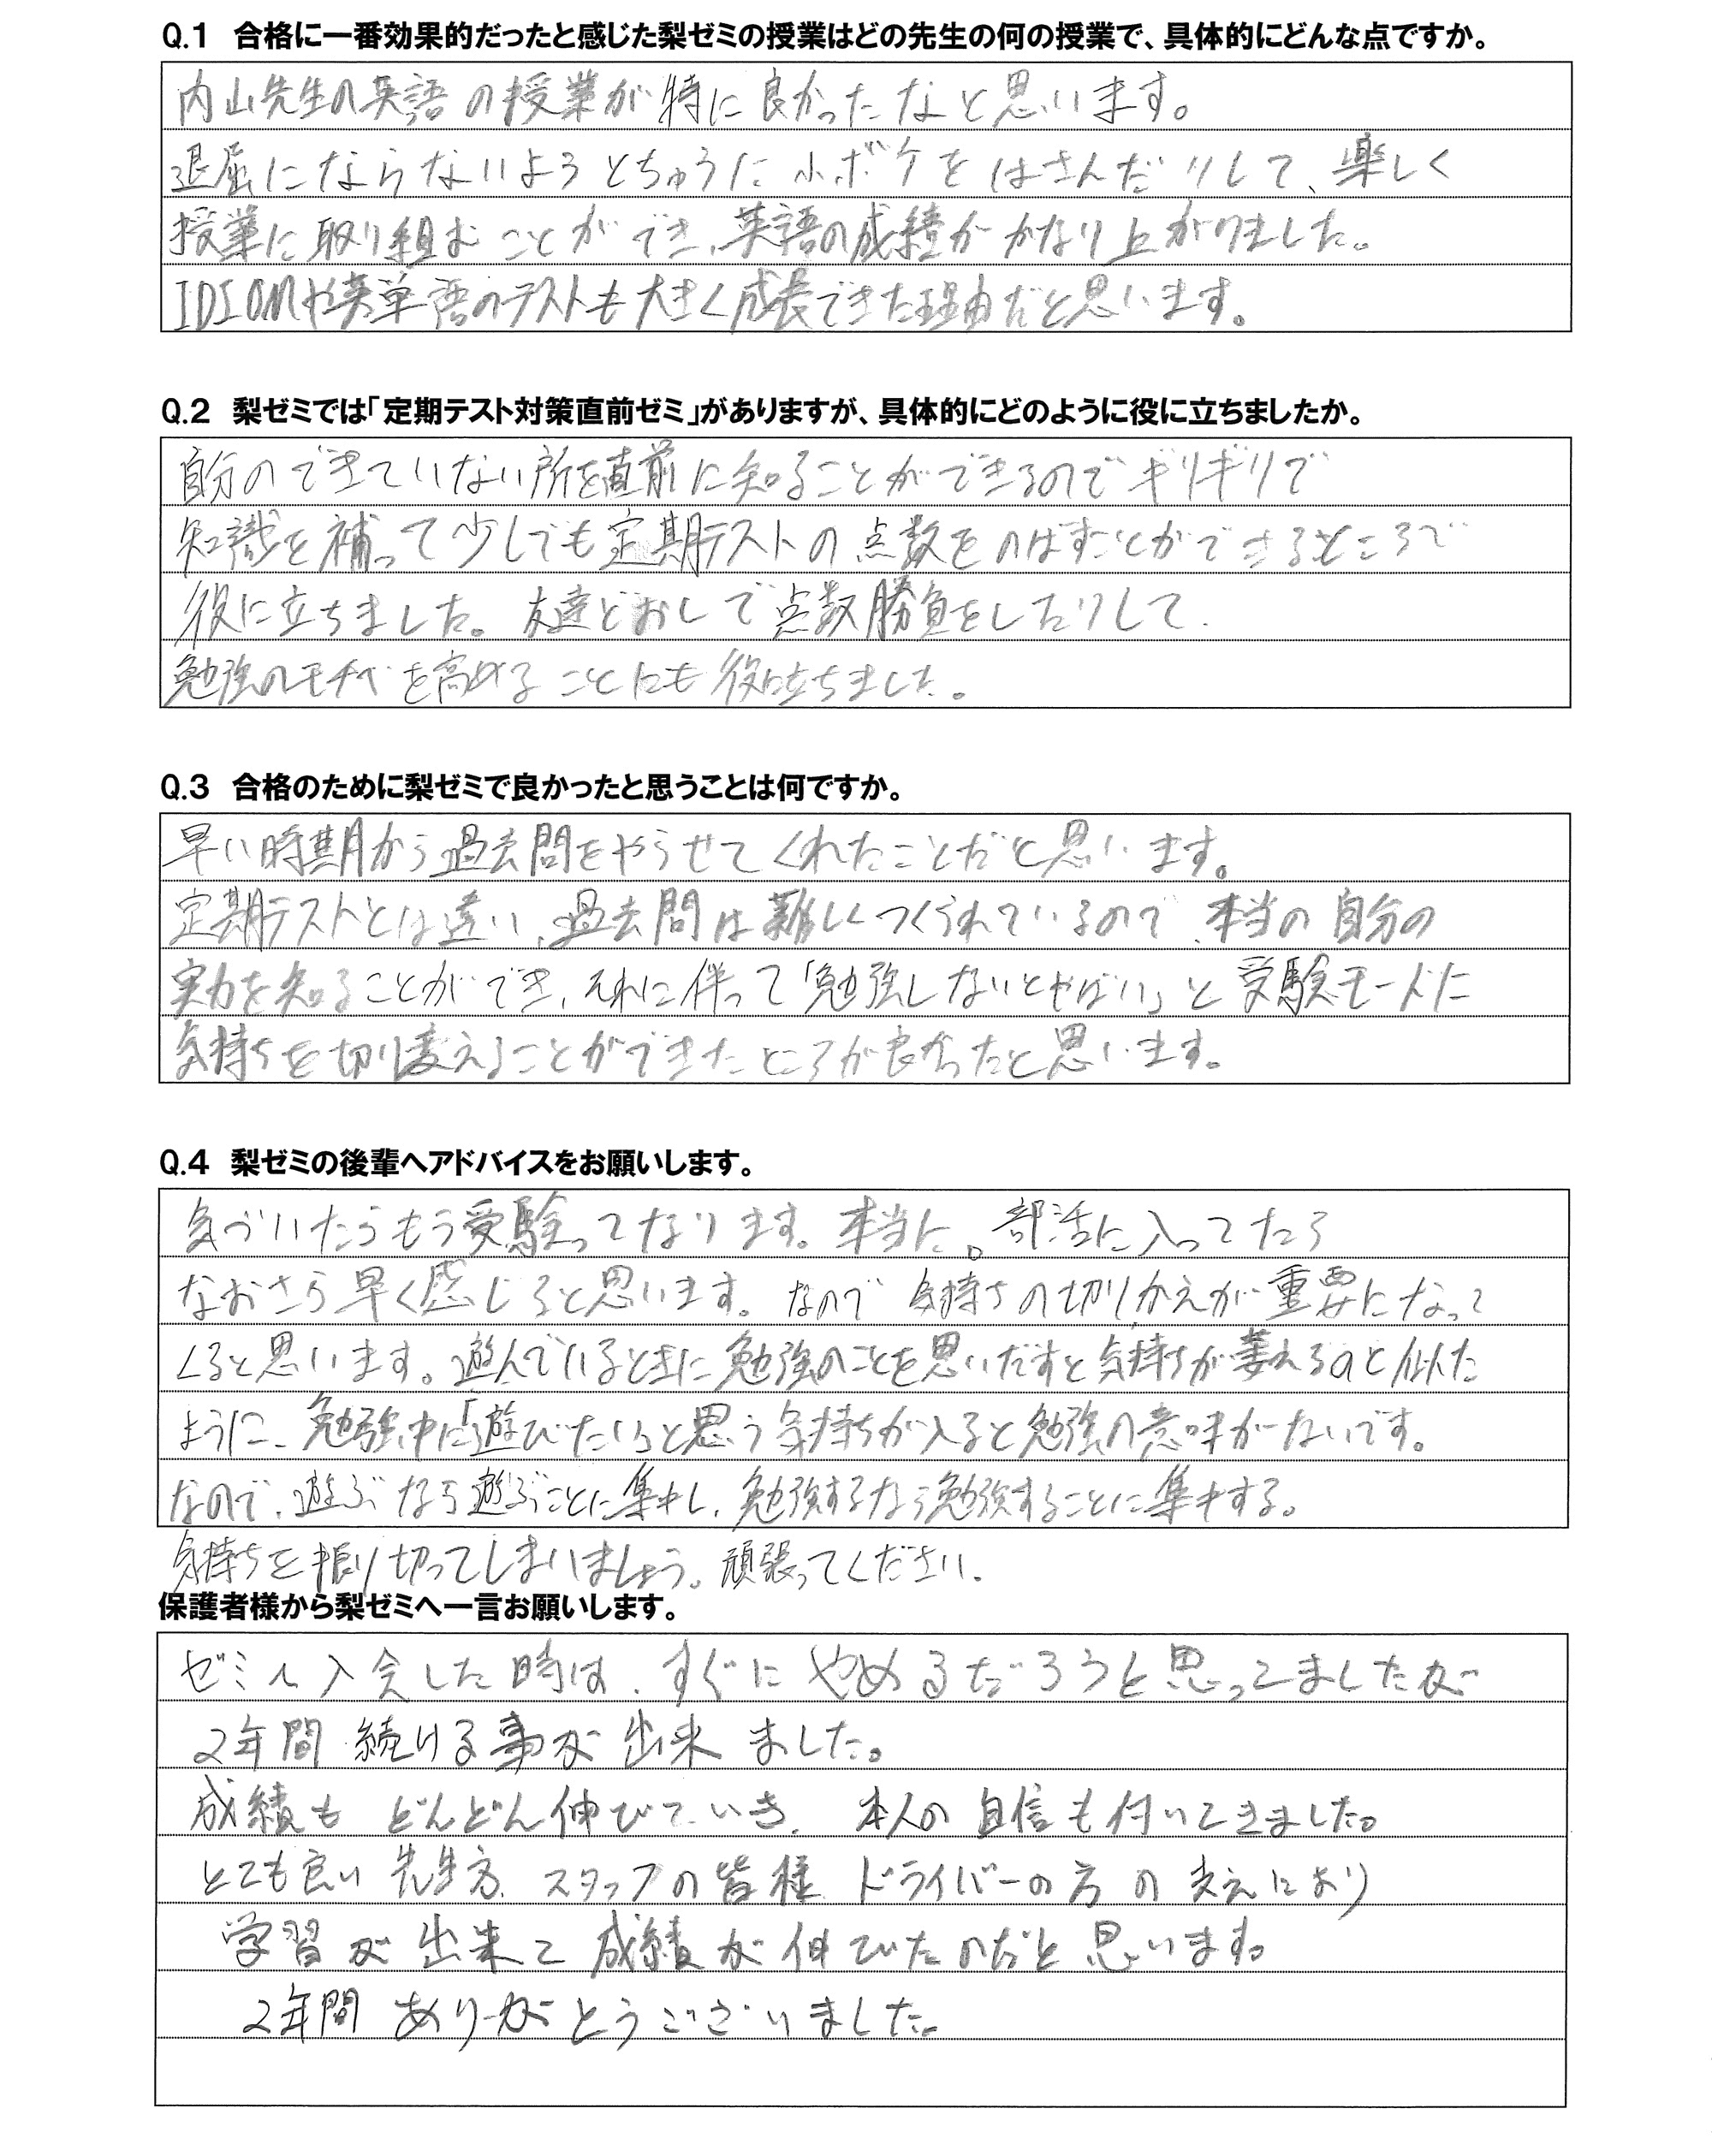 Q.1 合格に一番効果的だったと感じた梨ゼミの授業はどの先生の何の授業で、具体的にどんな点ですか。
内山先生の英語の授業が特に良かったなと思います。
退屈にならないようとちゅうに小ボケをはさんだりして、楽しく
授業に取り組むことができ、英語の成績がかなり上がりました。
IDIOMや英単語のテストも大きく成長できた理由だと思います。
Q.2 梨ゼミでは「定期テスト対策直前ゼミ」がありますが、具体的にどのように役に立ちましたか。
自分のできていない所を直前に知ることができるのでギリギリで
知識を補って少しでも定期テストの点数をのばすことができるところで
役に立ちました。友達どおしで点数勝負をしたりして
勉強のモチベを高めることにも役に立ちました。
Q.3 合格のために梨ゼミで良かったと思うことは何ですか。
早い時期から過去問をやらせてくれたことだと思います。
定期テストとは違い、過去問は難しくつくられているので、本当の自分の
実力を知ることができ、それに伴って「勉強しないとやばい」と受験モードに
気持ちを切り変えることができたところが良かったと思います。
Q.4 梨ゼミの後輩へアドバイスをお願いします。
気づいたらもう受験ってなります。本当に。部活に入ってたら
なおさら早く感じると思います。なので気持ちの切りかえが重要になって
くると思います。遊んでいるときに勉強のことを思いだすと気持ちが萎えるのと似た
ように、勉強中に「遊びたい」と思う気持ちが入ると勉強の意味がーないです。
なので、遊ぶなら遊ぶことに集中し、勉強するなら勉強することに集中する。
気持ちを振り切ってしまいましょう。頑張ってください。
保護者様から梨ゼミへ一言お願いします。
ゼミへ入会した時は、すぐにやめるだろうと思ってましたが
2年間続ける事が出来ました。
成績もどんどん伸びていき、本人の自信も付いてきました。
とても良い先生方、スタッフの皆様、ドライバーの方の支えにより
学習が出来て成績が伸びたのだと思います。
2年間ありがとうございました。